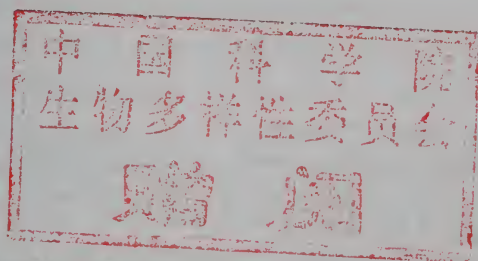 中国科学院
生物多样性委员会
赠阅